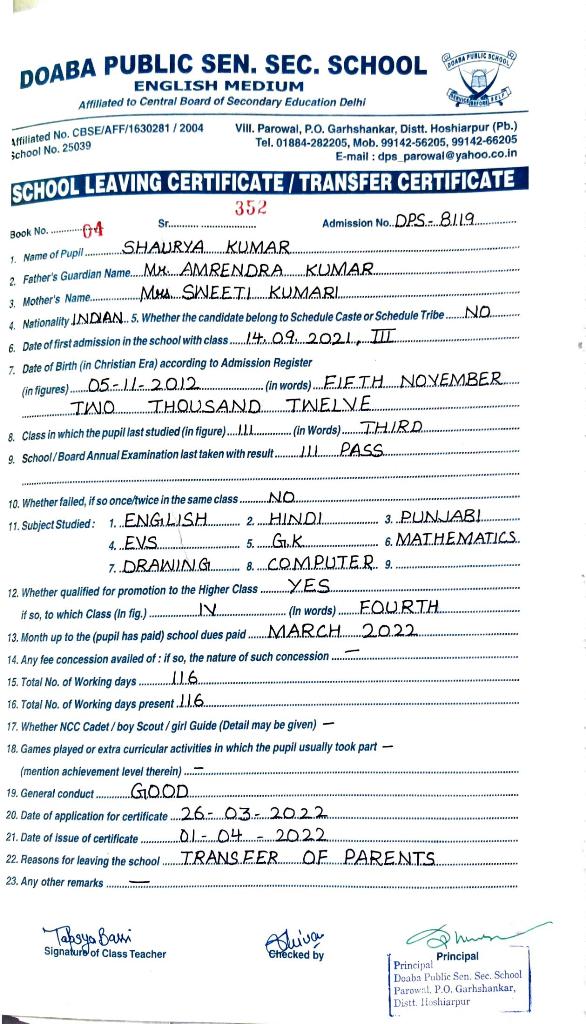 DOABA PUBLIC SEN. SEC. SCHOOL
DOABA PUBLIC SCHOOL
SERVICE BEFORE SELF
ENGLISH MEDIUM
Affiliated to Central Board of Secondary Education Delhi
Affiliated No. CBSE/AFF/1630281 / 2004
School No. 25039
Vill. Parowal, P.O. Garhshankar, Distt. Hoshiarpur (Pb.)
Tel. 01884-282205, Mob. 99142-56205, 99142-66205
E-mail : dps_parowal@yahoo.co.in
SCHOOL LEAVING CERTIFICATE / TRANSFER CERTIFICATE
Book No. 04 Sr. 352 Admission No. DPS-8119
1. Name of Pupil SHAURYA KUMAR
2. Father's Guardian Name Mr. AMRENDRA KUMAR
3. Mother's Name Mrs SWEETI KUMARI
4. Nationality INDIAN 5. Whether the candidate belong to Schedule Caste or Schedule Tribe NO
6. Date of first admission in the school with class 14.09.2021, III
7. Date of Birth (in Christian Era) according to Admission Register
(in figures) 05-11-2012 (in words) FIFTH NOVEMBER
TWO THOUSAND TWELVE
8. Class in which the pupil last studied (in figure) III (in Words) THIRD
9. School / Board Annual Examination last taken with result III PASS
10. Whether failed, if so once/twice in the same class NO
11. Subject Studied : 1. ENGLISH 2. HINDI 3. PUNJABI
4. EVS 5. G.K 6. MATHEMATICS
7. DRAWING 8. COMPUTER 9.
12. Whether qualified for promotion to the Higher Class YES
if so, to which Class (In fig.) IV (In words) FOURTH
13. Month up to the (pupil has paid) school dues paid MARCH 2022
14. Any fee concession availed of : if so, the nature of such concession —
15. Total No. of Working days 116
16. Total No. of Working days present 116
17. Whether NCC Cadet / boy Scout / girl Guide (Detail may be given) —
18. Games played or extra curricular activities in which the pupil usually took part —
(mention achievement level therein) —
19. General conduct GOOD
20. Date of application for certificate 26-03-2022
21. Date of issue of certificate 01-04-2022
22. Reasons for leaving the school TRANSFER OF PARENTS
23. Any other remarks —
Signature of Class Teacher
Checked by
Principal
Principal
Doaba Public Sen. Sec. School
Parowal, P.O. Garhshankar,
Distt. Hoshiarpur